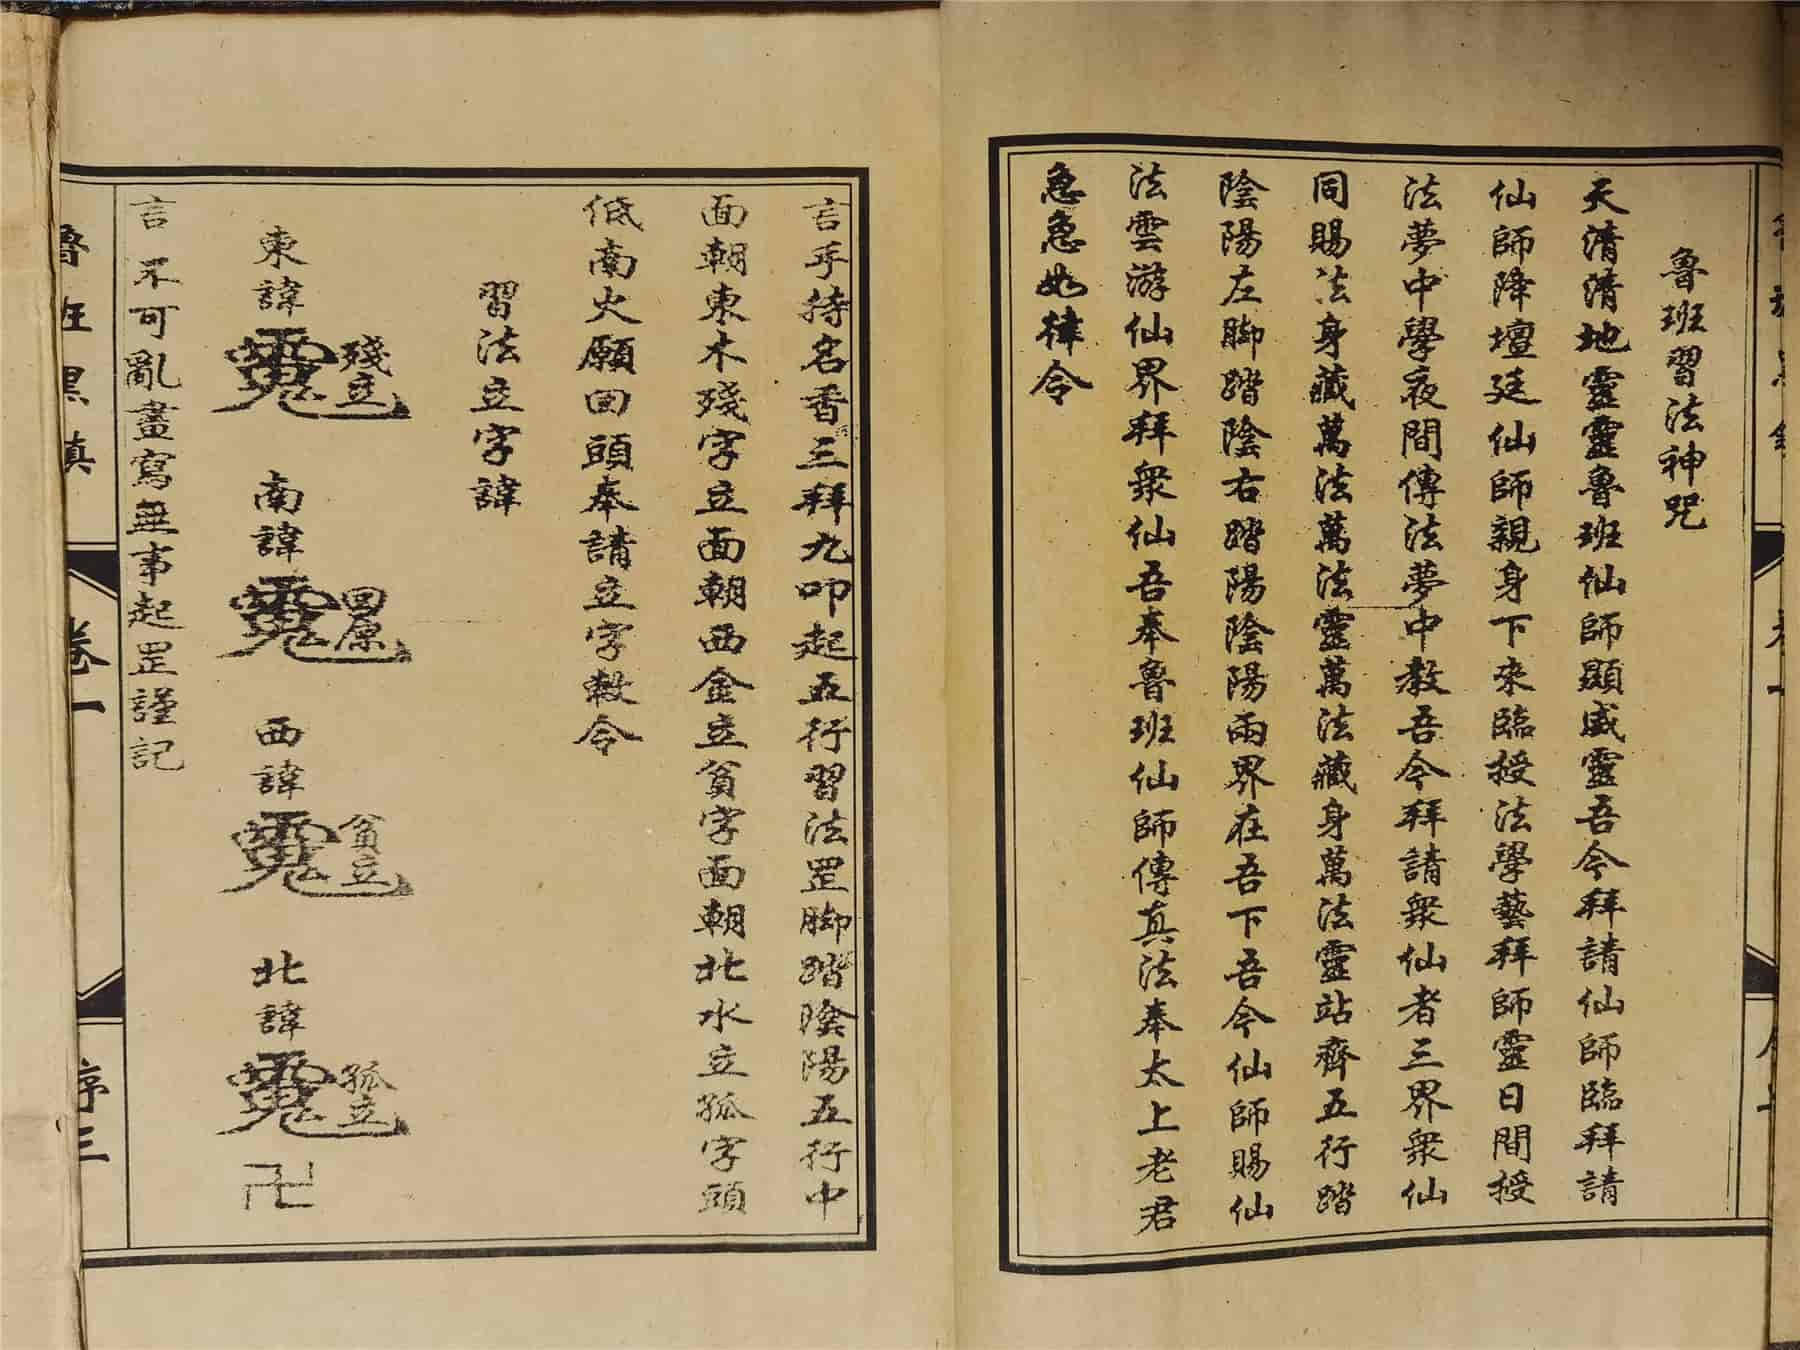 魯班習法神咒
天清清地靈靈魯班仙師顯威靈吾今拜請仙師臨拜請
仙師降壇廷仙師親身下來臨授法學藝拜師靈日間授
法夢中學夜間傳法夢中教吾今拜請衆仙者三界衆仙
同賜法身藏萬法萬法靈萬法藏身萬法靈站齊五行踏
陰陽左脚踏陰右踏陽陰陽兩界在吾下吾今仙師賜仙
法雲游仙界拜衆仙吾奉魯班仙師傳真法奉太上老君
急急如律令
言手持名香三拜九叩起五行習法罡脚踏陰陽五行中
面朝東木殘字立面朝西金立貧字面朝北水立孤字頭
低南火願回頭奉請立字敕令
習法立字諱
東諱
殘立
南諱
回原
西諱
貧立
北諱
孤立
卍
言不可亂畫寫無事起罡謹記
魯班黑鎮
卷一
序三